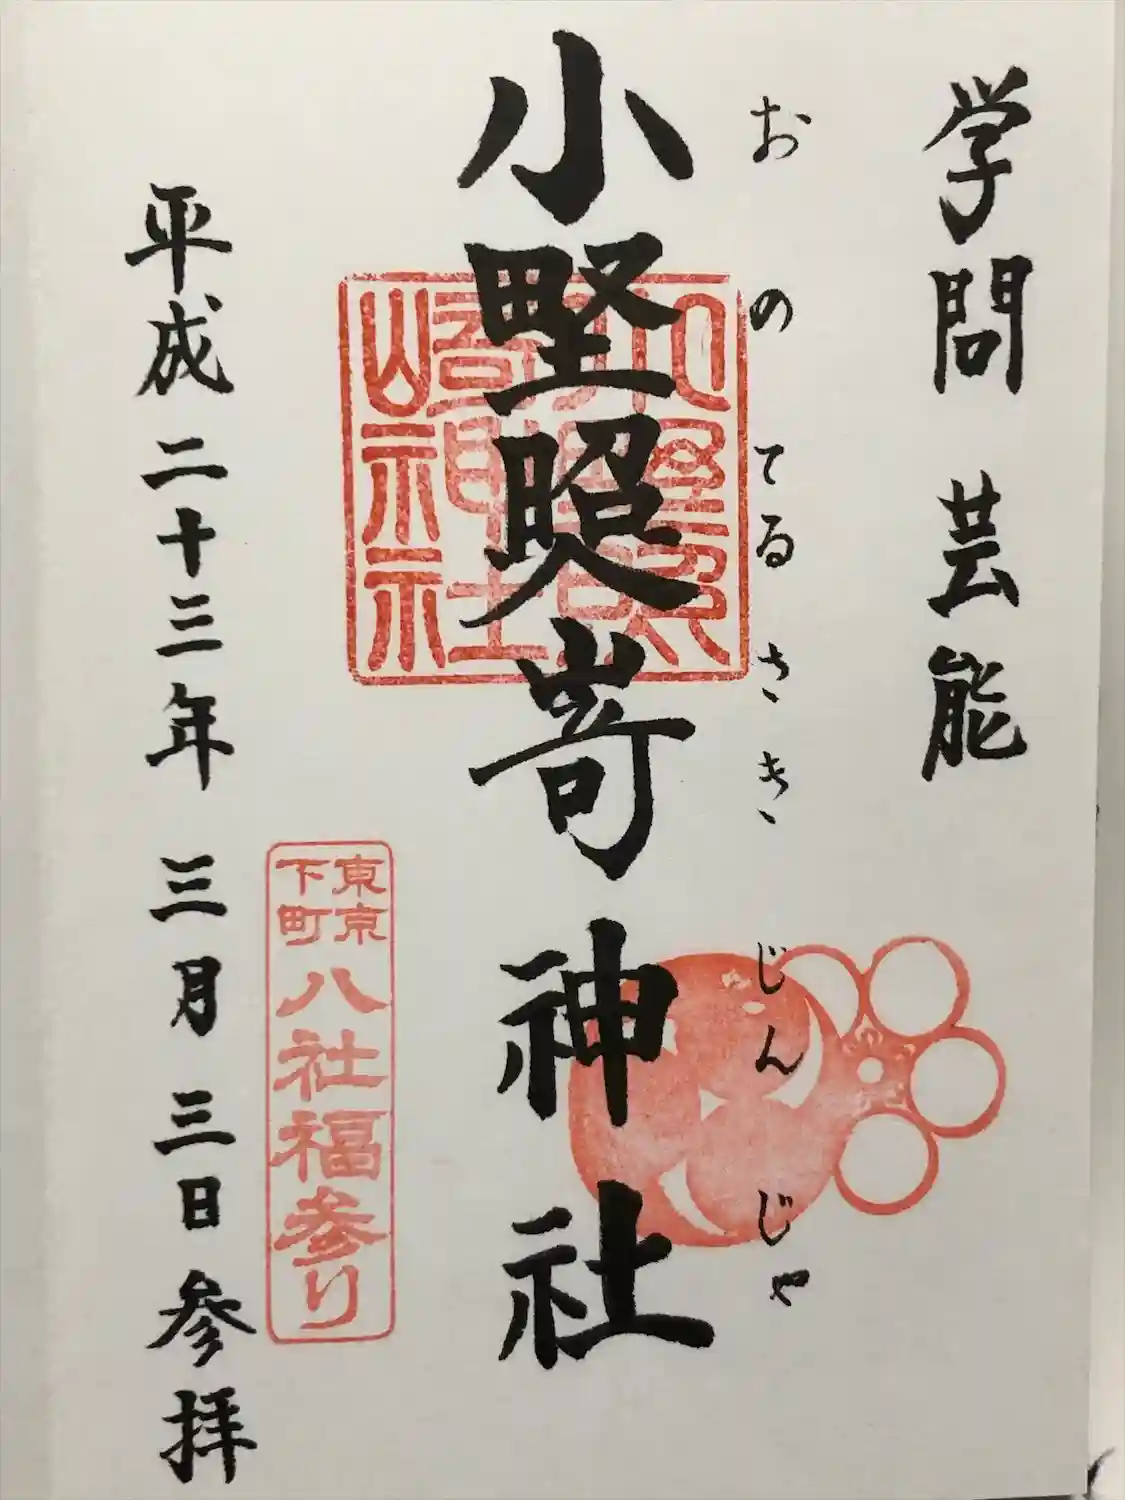 学問 芸能
おのてるさきじんじゃ
小野照嵜神社
小野照
埼神社
東京
下町
八社福参り
平成二十三年 三月三日 参拝